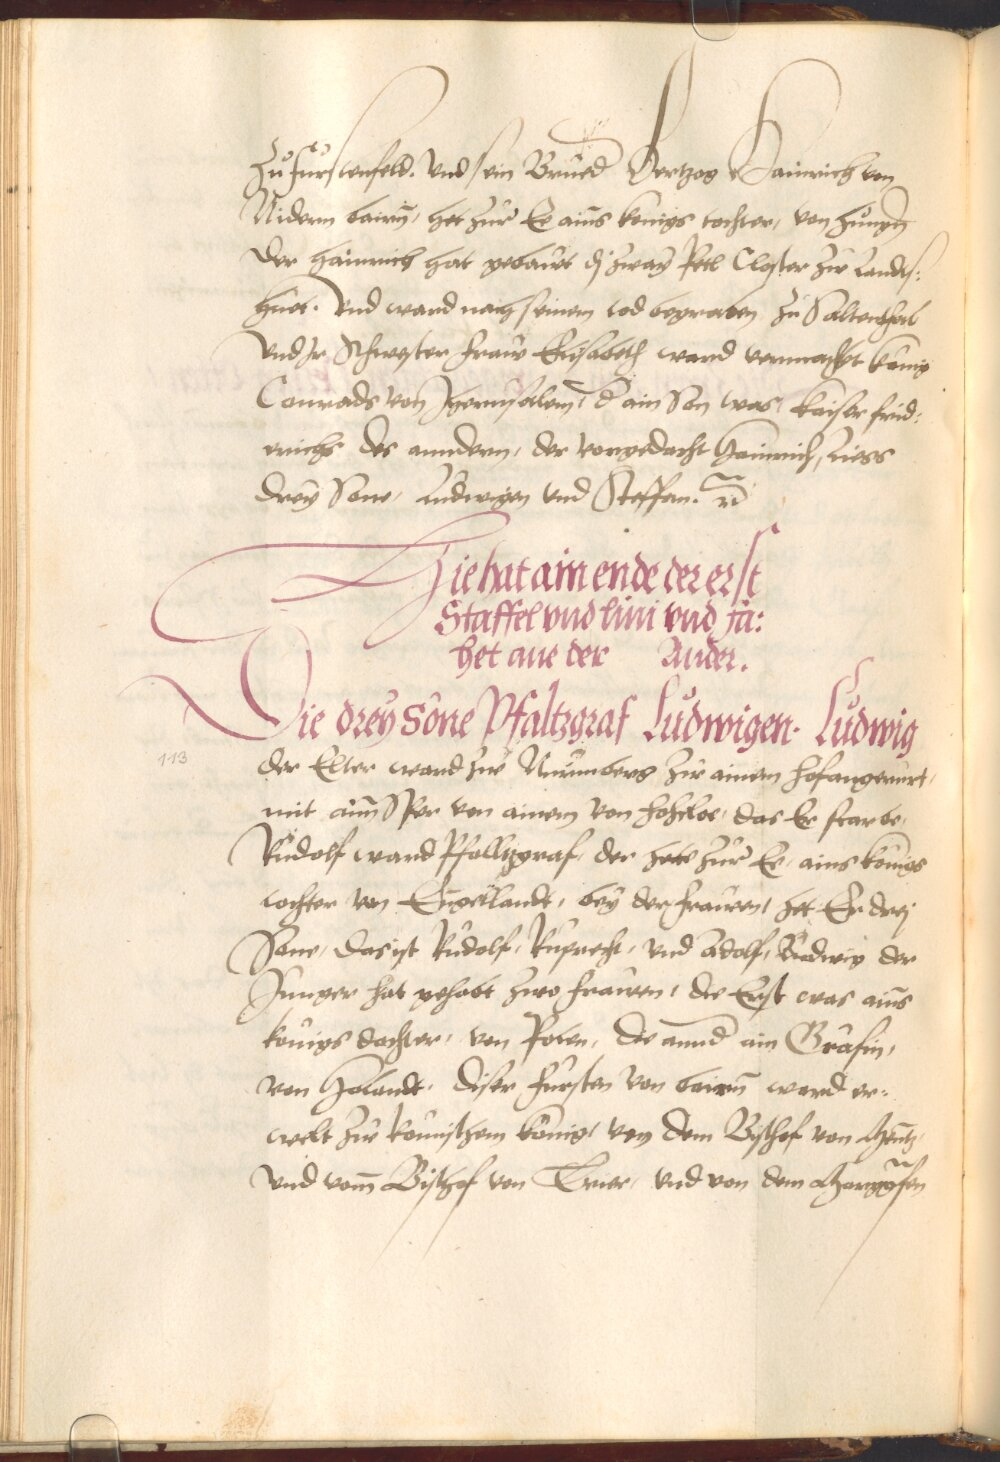 Zu furstenfeld. Vnd sein Brued Hertzog Hainrich von
Nidern bairn, het zur Ee ains konigs tochter, von Hungern
Der Hainrich hat gebaut di zway Petl Closter zu Lands:
huet. Vnd ward nach seinem tod begraben zu Saltenthal
Vnd Ir Schwester fraw Elisabeth ward vermachelt konig
Conrads von Jherusalem, d ain Son was, kaiser frid:
reichs des anndern, der vorgedacht Hainrich, Liess
drey Sone, Ludwigen vnd Steffan. rc
Hie hat ain ende der erst
Staffel vnd lini vnd fa:
het ane der Ander.
Die drey Söne Pfaltzgraf Ludwigen. Ludwig
113
der Elter ward zu Nurmberg zu ainem hof angerurt,
mit ainem Sper von ainem von hoheloe, das Er starbe,
Rudolf ward Pfalltzgraf, der hete zur Ee, ains konigs
tochter von Engellandt, bey der frawen, het Er drej
Söne, Das ist Rudolf, Ruprecht, vnd Adolf, Ludwig der
Junger hat gehabt zwo frawen, die Erst was ains
konigs dochter, von Polen, die annd ain Gräfin,
von Holandt. diser fursten von bairn ward er:
welt zu Romischem konig, von dem Bischof von Mentz,
vnd vom Bischof von Trier, vnd von dem Marggrafen